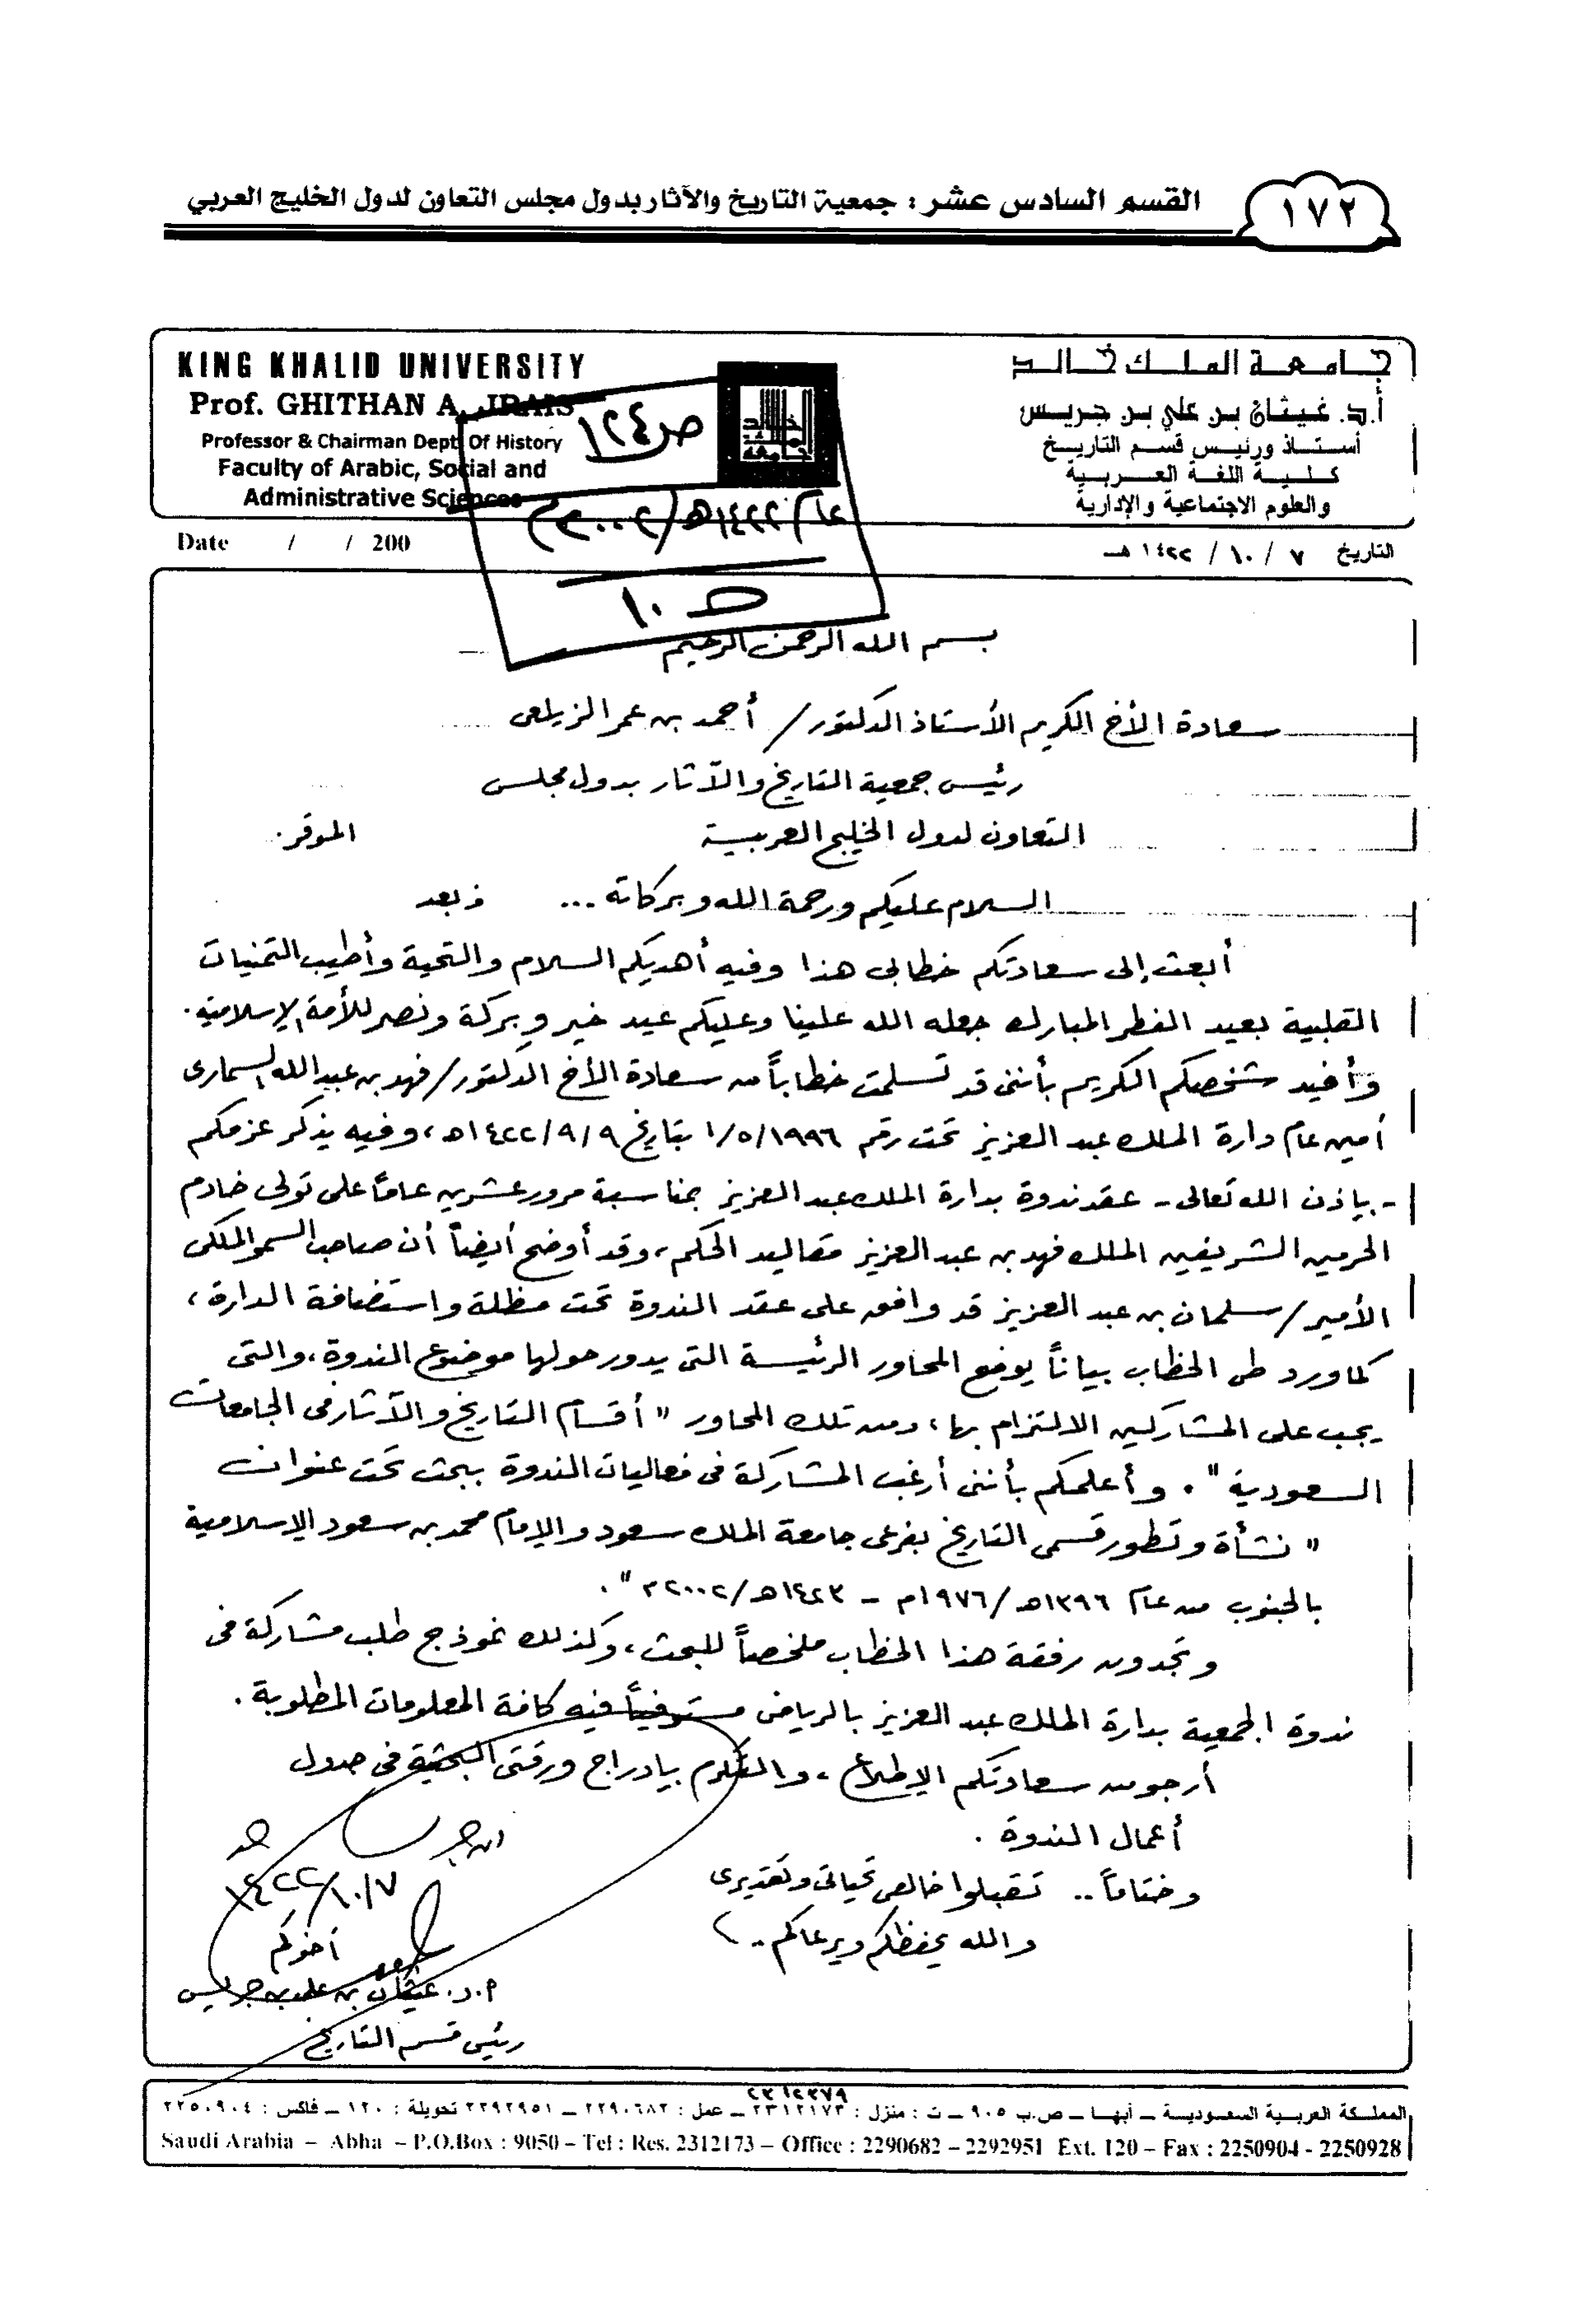 القسم السادس عشر : جمعية التاريخ والآثار بدول مجلس التعاون لدول الخليج العربي
١٧٢
KING KHALID UNIVERSITY
Prof. GHITHAN A. JRAIS
Professor & Chairman Dept. Of History
Faculty of Arabic, Social and
Administrative Sciences
جامعة الملك خالد
أ.د. غيثان بن علي بن جريس
أستاذ ورئيس قسم التاريخ
كلية اللغة العربية
والعلوم الاجتماعية والإدارية
ص١٢٤
عام ١٤٢٢هـ/٢٠٠٢م
١٠
Date / / 200
التاريخ ٧ / ١٠ / ١٤٢٢ هـ
بسم الله الرحمن الرحيم
سعادة الأخ الكريم الأستاذ الدكتور/ أحمد بن عمر الزيلعي
رئيس جمعية التاريخ والآثار بدول مجلس
التعاون لدول الخليج العربية الموقر.
السلام عليكم ورحمة الله وبركاته ... وبعد
أبعث إلى سعادتكم خطابي هذا وفيه أهديكم السلام والتحية وأطيب التمنيات
القلبية بعيد الفطر المبارك جعله الله علينا وعليكم عيد خير وبركة ونصر للأمة الإسلامية.
وأفيد شخصكم الكريم بأنني قد تسلمت خطاباً من سعادة الأخ الدكتور/ فهد بن عبدالله السماري
أمين عام دارة الملك عبد العزيز تحت رقم ١/٥/١٩٩٦ بتاريخ ١٤٢٢/٩/٩هـ، وفيه يذكر عزمكم
- بإذن الله تعالى - عقد ندوة بدارة الملك عبد العزيز بمناسبة مرور عشرين عاماً على تولي خادم
الحرمين الشريفين الملك فهد بن عبد العزيز مقاليد الحكم، وقد أوضح أيضاً أن صاحب السمو الملكي
الأمير/ سلمان بن عبد العزيز قد وافق على عقد الندوة تحت مظلة واستضافة الدارة،
كما ورد طي الخطاب بياناً يوضح المحاور الرئيسة التي يدور حولها موضوع الندوة، والتي
يجب على المشاركين الالتزام بها، ومن تلك المحاور " أقسام التاريخ والآثار في الجامعات
السعودية ". وأعلمكم بأنني أرغب المشاركة في فعاليات الندوة ببحث تحت عنوان
" نشأة وتطور قسمي التاريخ بفرعي جامعة الملك سعود والإمام محمد بن سعود الإسلامية
بالجنوب من عام ١٣٩٦هـ/١٩٧٦م - ١٤٢٣هـ/٢٠٠٢م ".
وتجدون رفقة هذا الخطاب ملخصاً للبحث، وكذلك نموذج طلب مشاركة في
ندوة الجمعية بدارة الملك عبد العزيز بالرياض مستوفياً فيه كافة المعلومات المطلوبة.
أرجو من سعادتكم الإطلاع، والتكرم بإدراج ورقتي البحثية في جدول
أعمال الندوة.
وختاماً .. تقبلوا خالص تحياتي وتقديري
والله يحفظكم ويرعاكم ..
ابن جريس
١٤٢٢/١٠/٧
أخوكم
أ.د. غيثان بن علي بن جريس
رئيس قسم التاريخ
٢٣١٢٣٧٩
المملكة العربية السعودية – أبهـا – ص.ب ٩٠٥ – ت : منزل : ٢٣١٢١٧٣ – عمل : ٢٢٩٠٦٨٢ – ٢٢٩٢٩٥١ تحويلة : ١٢٠ – فاكس : ٢٢٥٠٩٠٤
Saudi Arabia – Abha – P.O.Box : 9050 – Tel : Res. 2312173 – Office : 2290682 – 2292951 Ext. 120 – Fax : 2250904 - 2250928